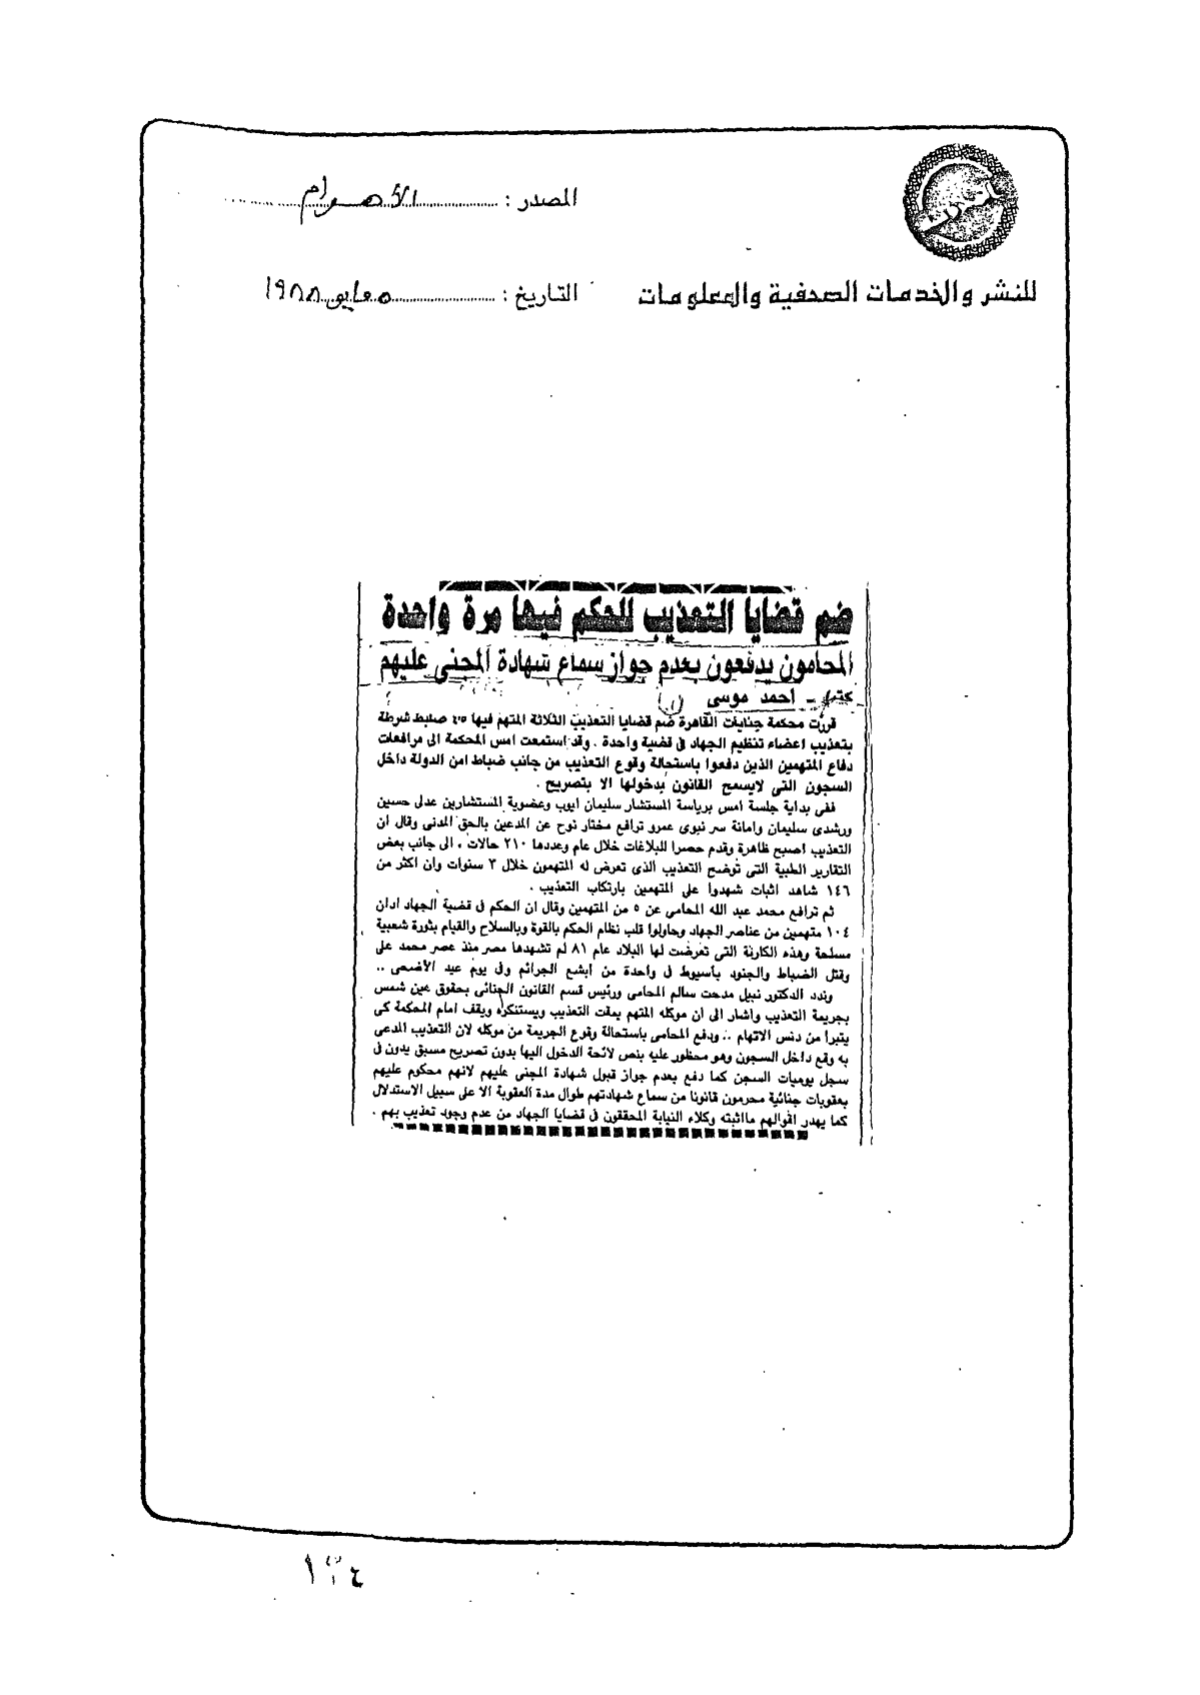 المصدر : الأهرام
للنشر والخدمات الصحفية والمعلومات
التاريخ : ٥ مايو ١٩٨٨
ضم قضايا التعذيب للحكم فيها مرة واحدة
المحامون يدفعون بعدم جواز سماع شهادة المجنى عليهم
كتب - احمد موسى
قررت محكمة جنايات القاهرة ضم قضايا التعذيب الثلاثة المتهم فيها ٤٥ ضابط شرطة
بتعذيب اعضاء تنظيم الجهاد فى قضية واحدة . وقد استمعت امس المحكمة الى مرافعات
دفاع المتهمين الذين دفعوا باستحالة وقوع التعذيب من جانب ضباط امن الدولة داخل
السجون التى لايسمح القانون بدخولها الا بتصريح .
ففى بداية جلسة امس برياسة المستشار سليمان ايوب وعضوية المستشارين عدلى حسين
ورشدى سليمان وامانة سر نبوى عمرو ترافع مختار نوح عن المدعين بالحق المدنى وقال أن
التعذيب اصبح ظاهرة وقدم حصرا للبلاغات خلال عام وعددها ٢١٠ حالات ، الى جانب بعض
التقارير الطبية التى توضح التعذيب الذى تعرض له المتهمون خلال ٣ سنوات وان اكثر من
١٤٦ شاهد اثبات شهدوا على المتهمين بارتكاب التعذيب .
ثم ترافع محمد عبد الله المحامى عن ٥ من المتهمين وقال ان الحكم فى قضية الجهاد ادان
١٠٤ متهمين من عناصر الجهاد وحاولوا قلب نظام الحكم بالقوة وبالسلاح والقيام بثورة شعبية
مسلحة وهذه الكارثة التى تعرضت لها البلاد عام ٨١ لم تشهدها مصر منذ عصر محمد على
وقتل الضباط والجنود بأسيوط فى واحدة من ابشع الجرائم وفى يوم عيد الأضحى ..
وندد الدكتور نبيل مدحت سالم المحامى ورئيس قسم القانون الجنائى بحقوق عين شمس
بجريمة التعذيب واشار الى ان موكله المتهم يمقت التعذيب ويستنكره ويقف امام المحكمة كى
يتبرأ من دنس الاتهام .. ودفع المحامى باستحالة وقوع الجريمة من موكله لان التعذيب المدعى
به وقع داخل السجون وهو محظور عليه بنص لائحة الدخول اليها بدون تصريح مسبق يدون فى
سجل يوميات السجن كما دفع بعدم جواز قبول شهادة المجنى عليهم لانهم محكوم عليهم
بعقوبات جنائية محرمون قانونا من سماع شهادتهم طوال مدة العقوبة الا على سبيل الاستدلال
كما يهدر اقوالهم مااثبته وكلاء النيابة المحققون فى قضايا الجهاد من عدم وجود تعذيب بهم .